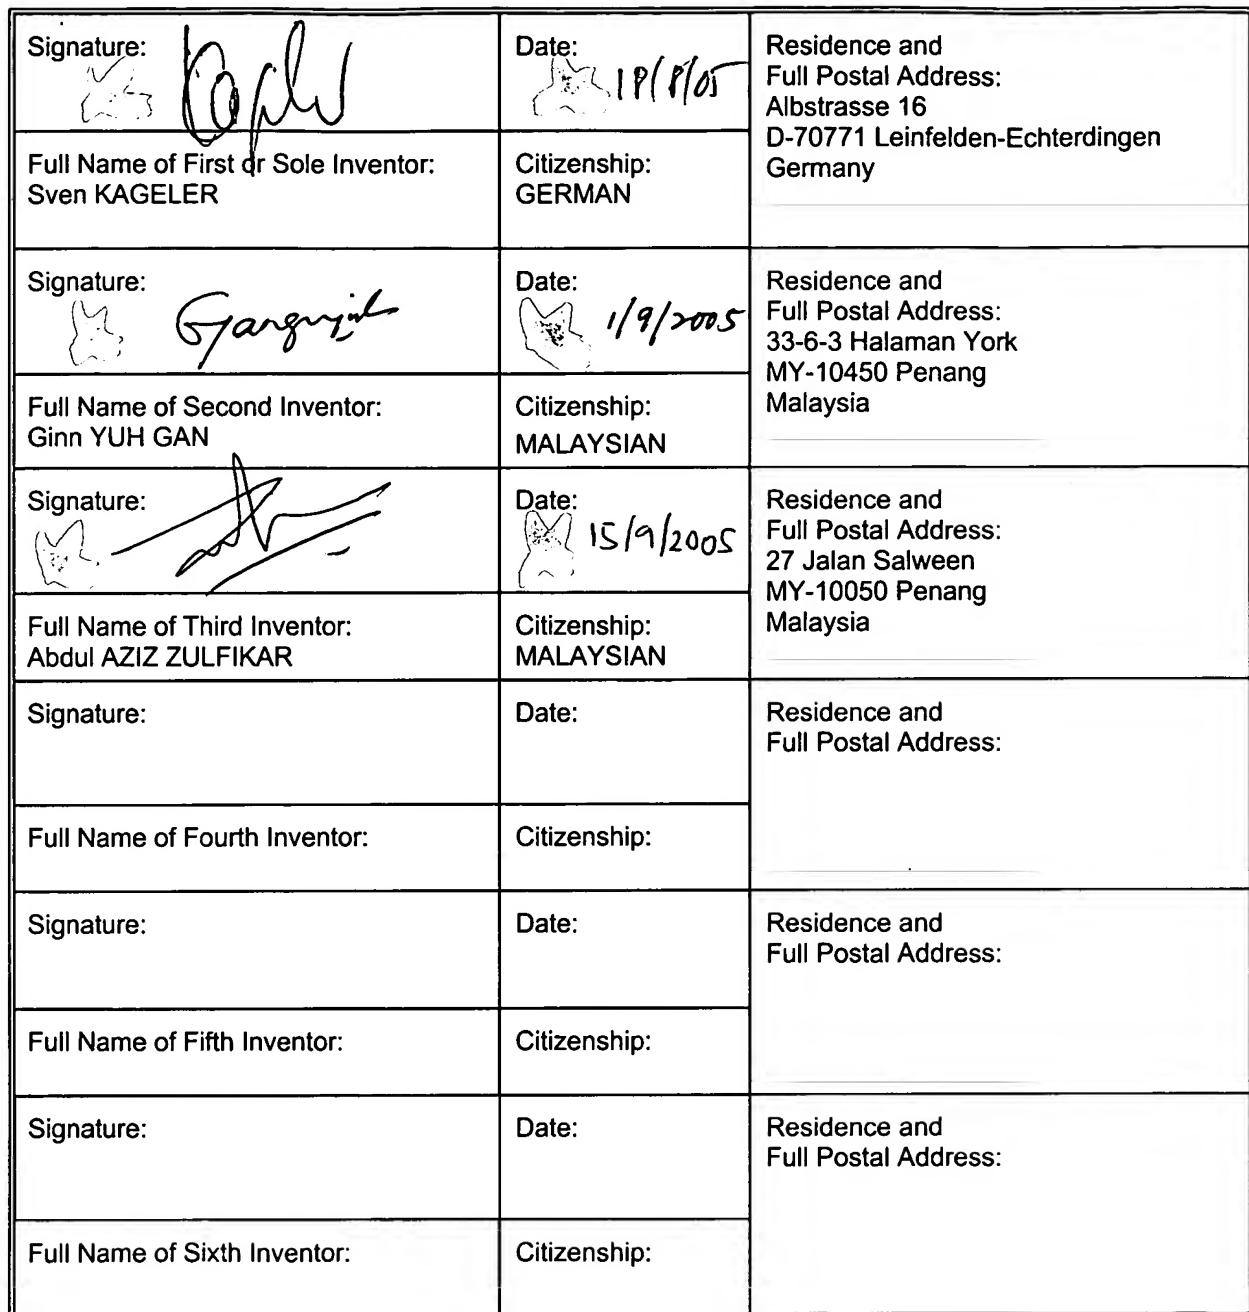 Signature:
Date:
18/8/05
Residence and
Full Postal Address:
Albstrasse 16
D-70771 Leinfelden-Echterdingen
Germany
Full Name of First or Sole Inventor:
Sven KAGELER
Citizenship:
GERMAN
Signature:
Date:
1/9/2005
Residence and
Full Postal Address:
33-6-3 Halaman York
MY-10450 Penang
Malaysia
Full Name of Second Inventor:
Ginn YUH GAN
Citizenship:
MALAYSIAN
Signature:
Date:
15/9/2005
Residence and
Full Postal Address:
27 Jalan Salween
MY-10050 Penang
Malaysia
Full Name of Third Inventor:
Abdul AZIZ ZULFIKAR
Citizenship:
MALAYSIAN
Signature:
Date:
Residence and
Full Postal Address:
Full Name of Fourth Inventor:
Citizenship:
Signature:
Date:
Residence and
Full Postal Address:
Full Name of Fifth Inventor:
Citizenship:
Signature:
Date:
Residence and
Full Postal Address:
Full Name of Sixth Inventor:
Citizenship: